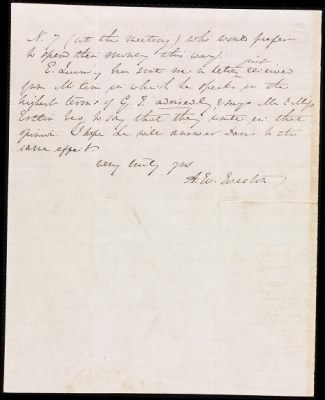 N. Y (at the meeting) who would prefer
to spend their money this way.
E. Quincy has sent me a letter just received
from in which he speaks in the
highest terms of G. T. advisedly & says Mr & Mrs
beg to say that they unite in that
opinion. I hope he will answer to the
same effect.
very truly yrs
A. W. Weston